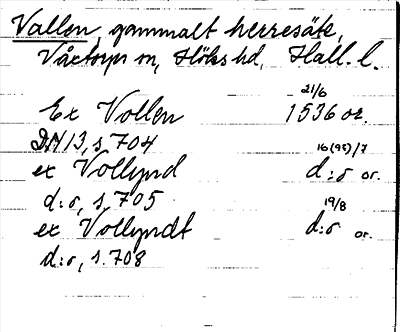 Vallen, gammalt herresäte,
Våxtorps sn, Höks hd, Hall. l.
21/6
Ex Vollen 1536 or.
DN 13, s. 704
16(95)/7
ex Vollynd d:o or.
d:o, s. 705
19/8
ex Vollyndt d:o or.
d:o, s. 708